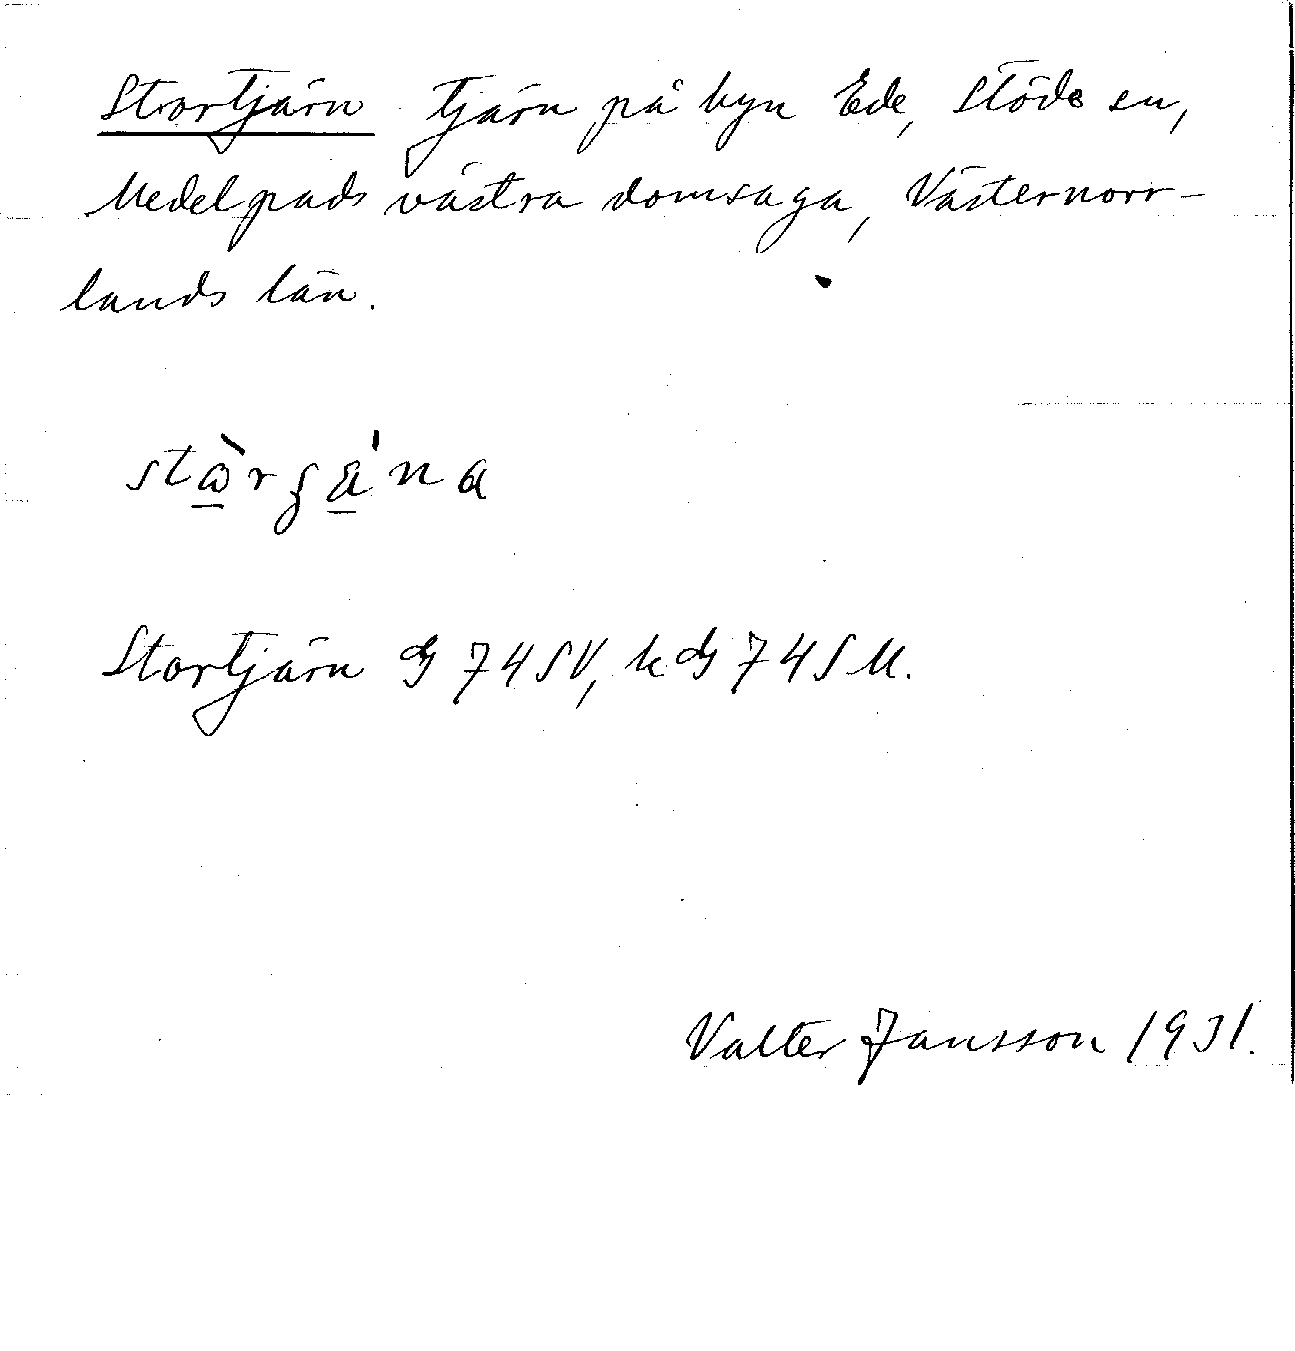 Stortjärn tjärn på byn Ede, Stöde sn,
Medelpads västra domsaga, Västernorr-
lands län.
Stortjärn 74 SV, k 74 S M.
Valter Jansson 1931.